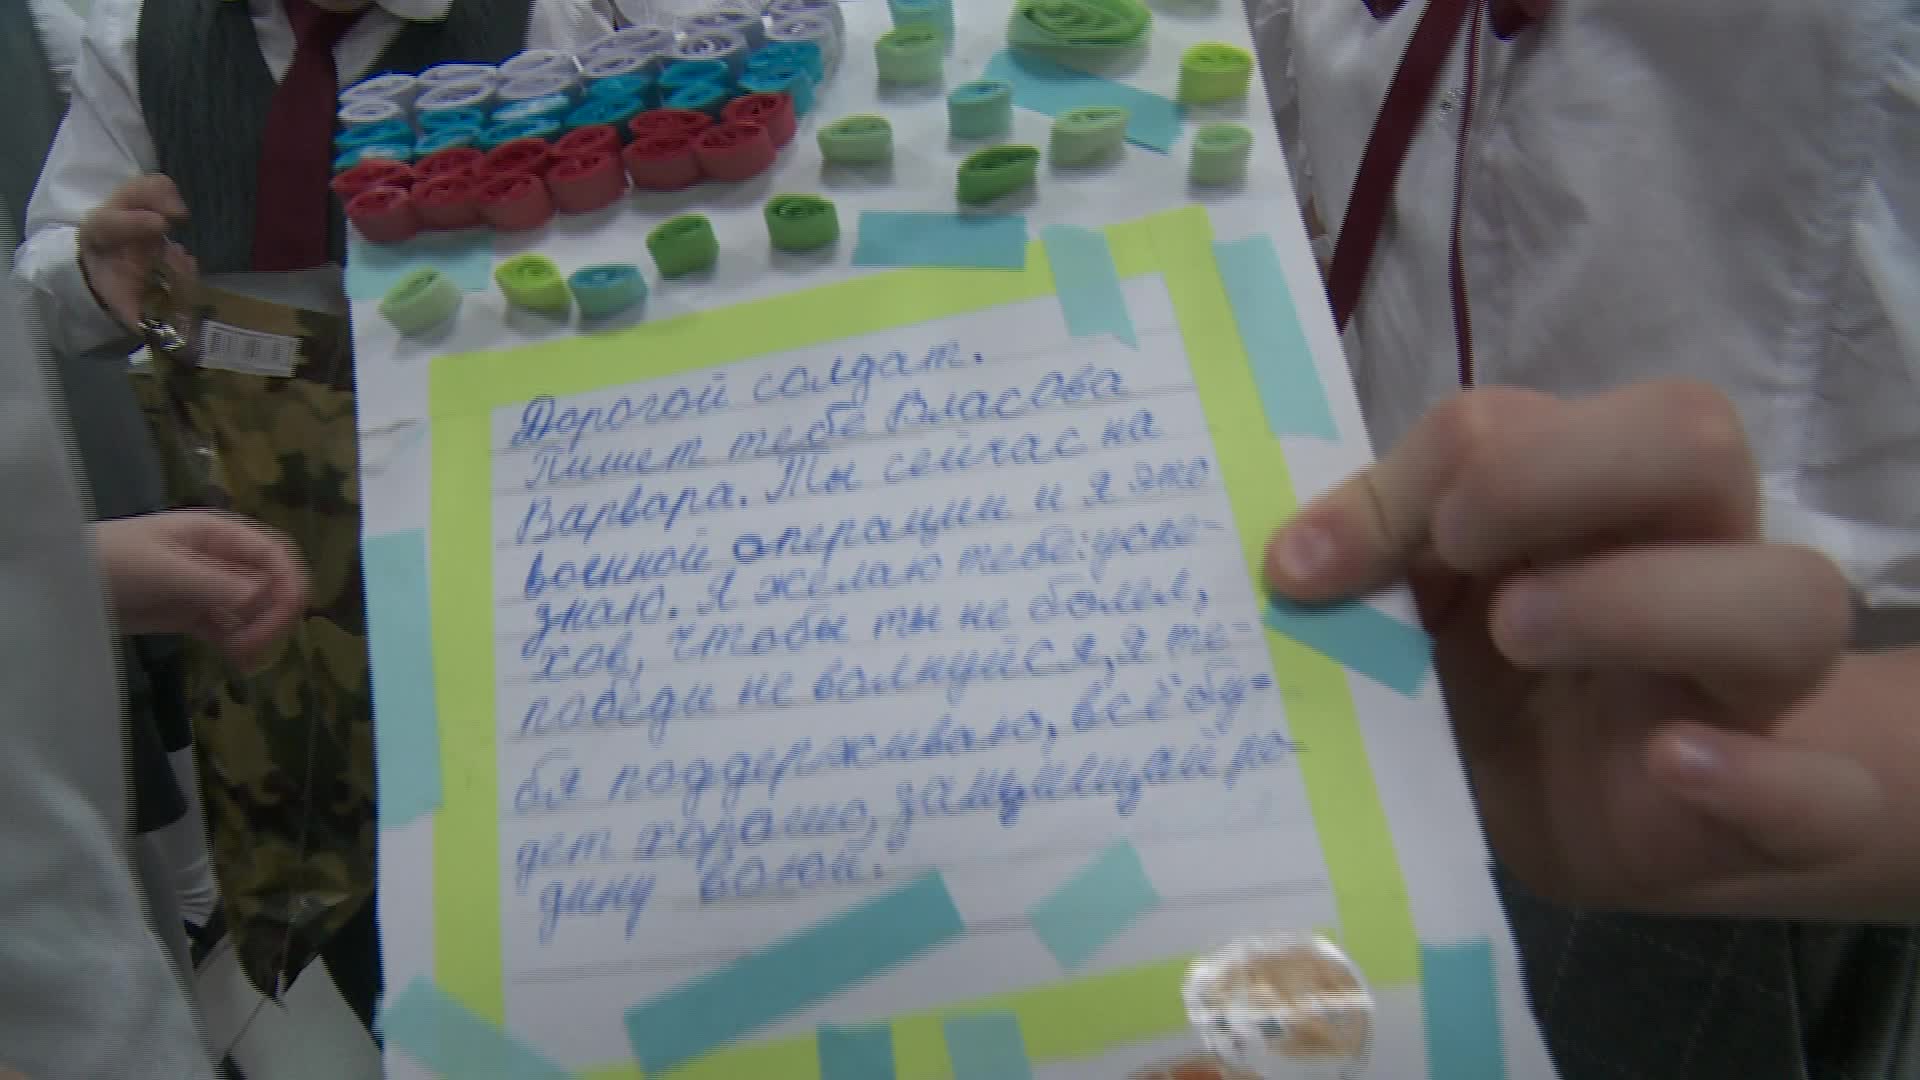 Дорогой солдат.
Пишет тебе Власова
Варвара. Ты сейчас на
военной операции и я это
знаю. Я желаю тебе: успе-
хов, чтобы ты не болел,
победи не волнуйся, я те-
бя поддерживаю, всё бу-
дет хорошо, защищай ро-
дину воюй.